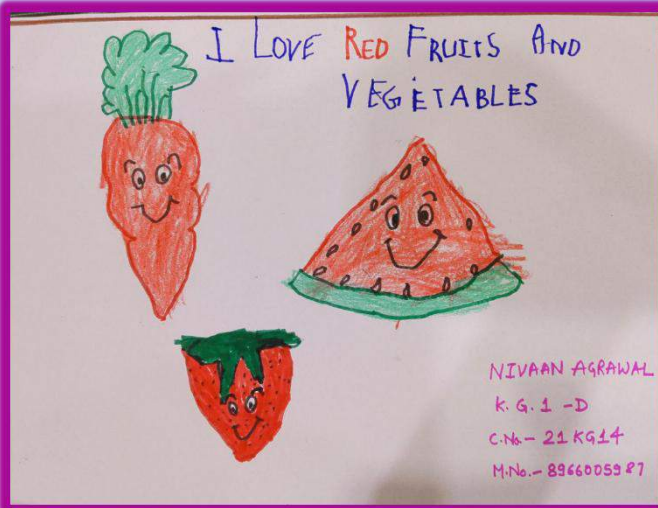 I LOVE RED FRUITS AND
VEGETABLES
NIVAAN AGRAWAL
K.G.1 -D
C.No.- 21KG14
M.No.- 8966005987